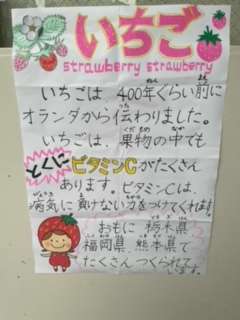 いちご
strawberry strawberry
いちごは、400年ぐらい前に
オランダから伝わりました。
いちごは、果物の中でも
とくに ビタミンCがたくさん
あります。ビタミンCは、
病気に負けない力をつけてくれます。
おもに 栃木県
福岡県、熊本県で
たくさんつくられて
います。